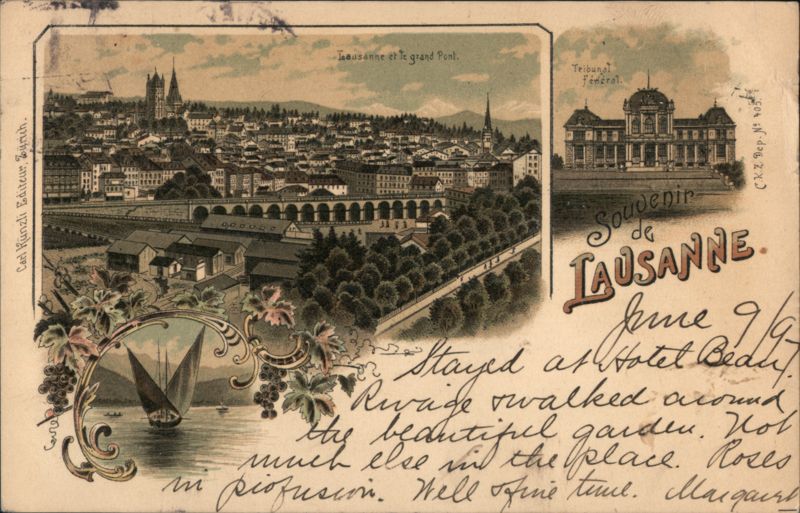 Lausanne et le grand Pont.
Tribunal
Fédéral.
Carl Künzli Editeur, Zürich.
C.K.Z. Dep. Nº 405.
Souvenir
de
LAUSANNE
June 9/97
Stayed at Hotel Beau
Rivage & walked around
the beautiful garden. Not
much else in the place. Roses
in profusion. Well & fine time. Margaret